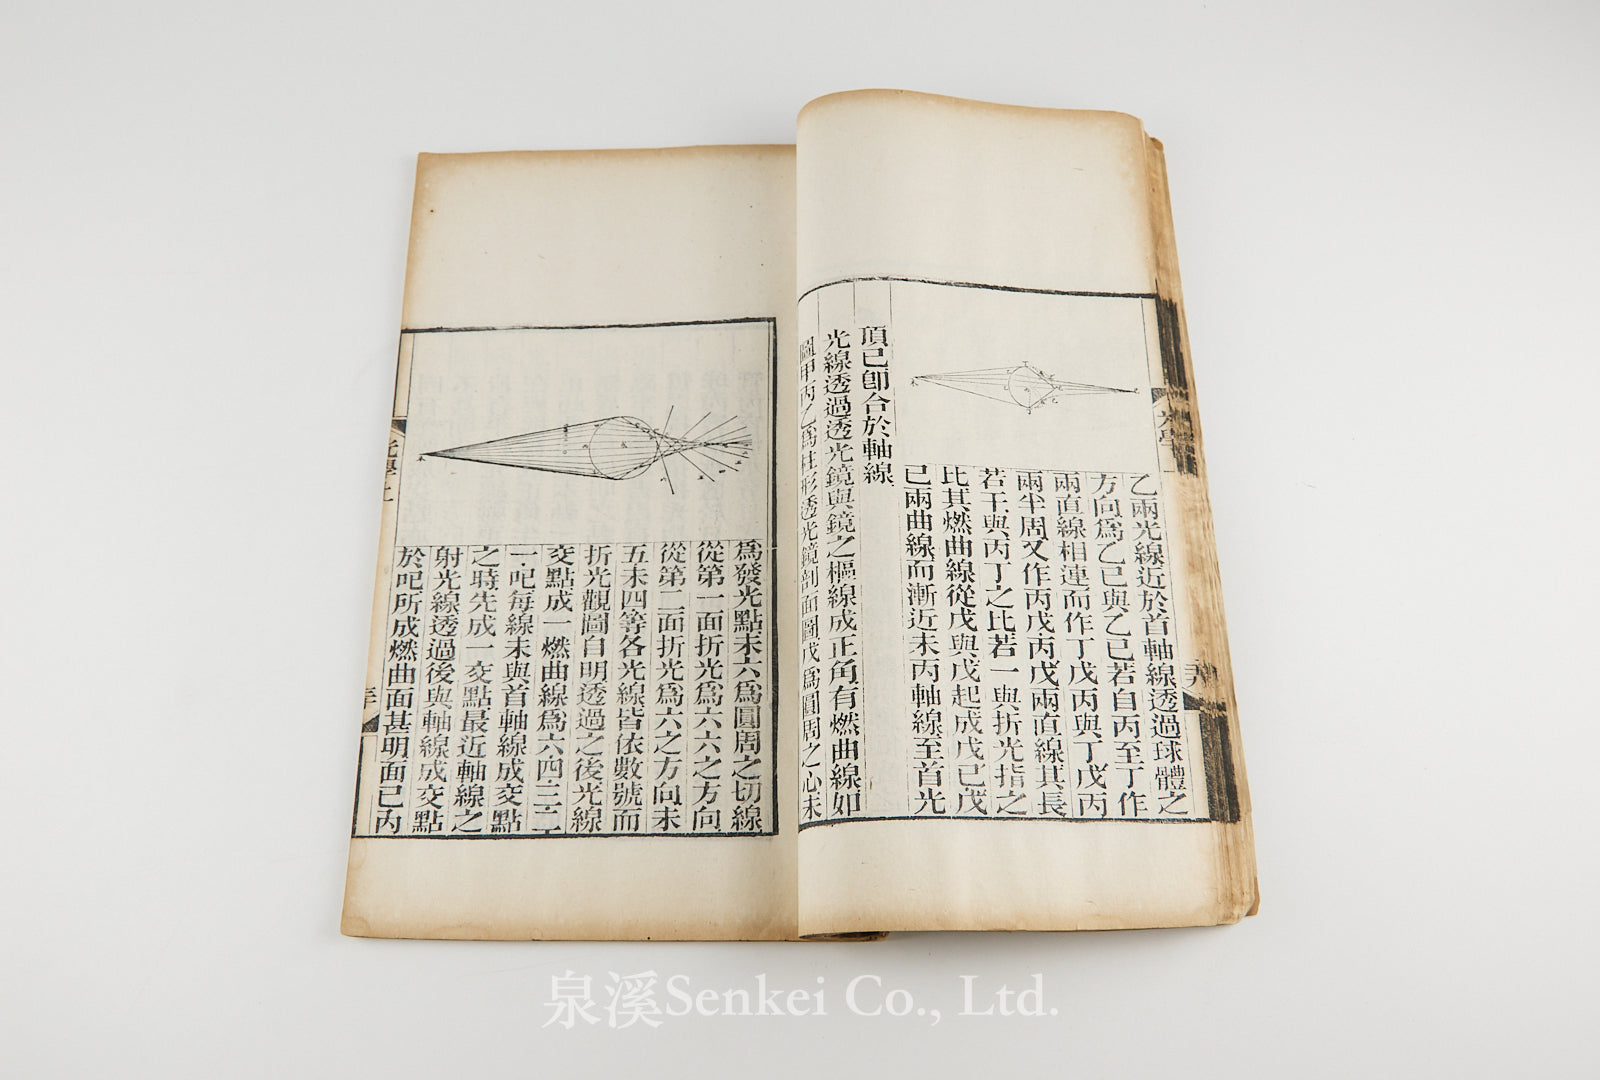 光學
乙兩光線近於首軸線透過球體之
方向為乙己與乙己若自丙至丁作
兩直線相連而作丁戊丙與丁戊丙
兩半周又作丙戊丙戊兩直線其長
若干與丙丁之比若一與折光指之
比其燃曲線從戊與戊起成戊己戊
己兩曲線而漸近未丙軸線至首光
頂己卽合於軸線
光線透過透光鏡與鏡之樞線成正角有燃曲線如
圖甲丙乙為柱形透光鏡剖面圖戊為圓周之心未
為發光點未六為圓周之切線
從第一面折光為六六之方向
從第二面折光為六之方向未
五未四等各光線皆依數號而
折光觀圖自明透過之後光線
交點成一燃曲線為六四三二
一吧每線未與首軸線成交點
之時先成一交點最近軸線之
射光線透過後與軸線成交點
於吧所成燃曲面甚明面已內
光學上
泉溪Senkei Co., Ltd.